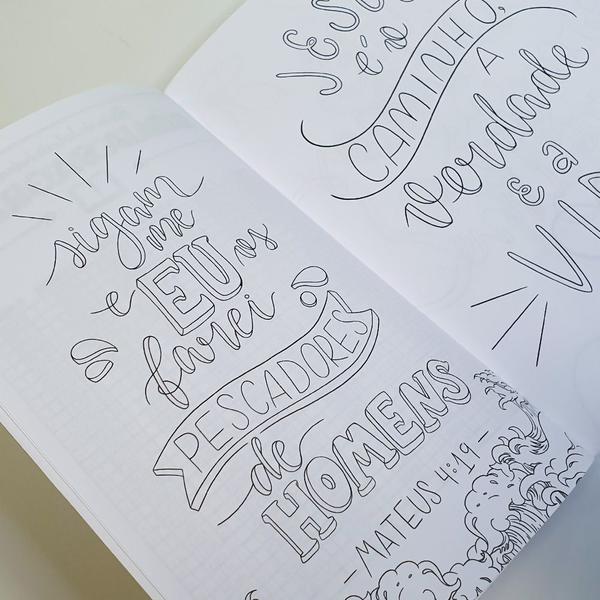 sigam
me
e EU os
farei
PESCADORES
de
HOMENS
-MATEUS 4:19-
JESUS
é o
CAMINHO,
A
verdade
E a